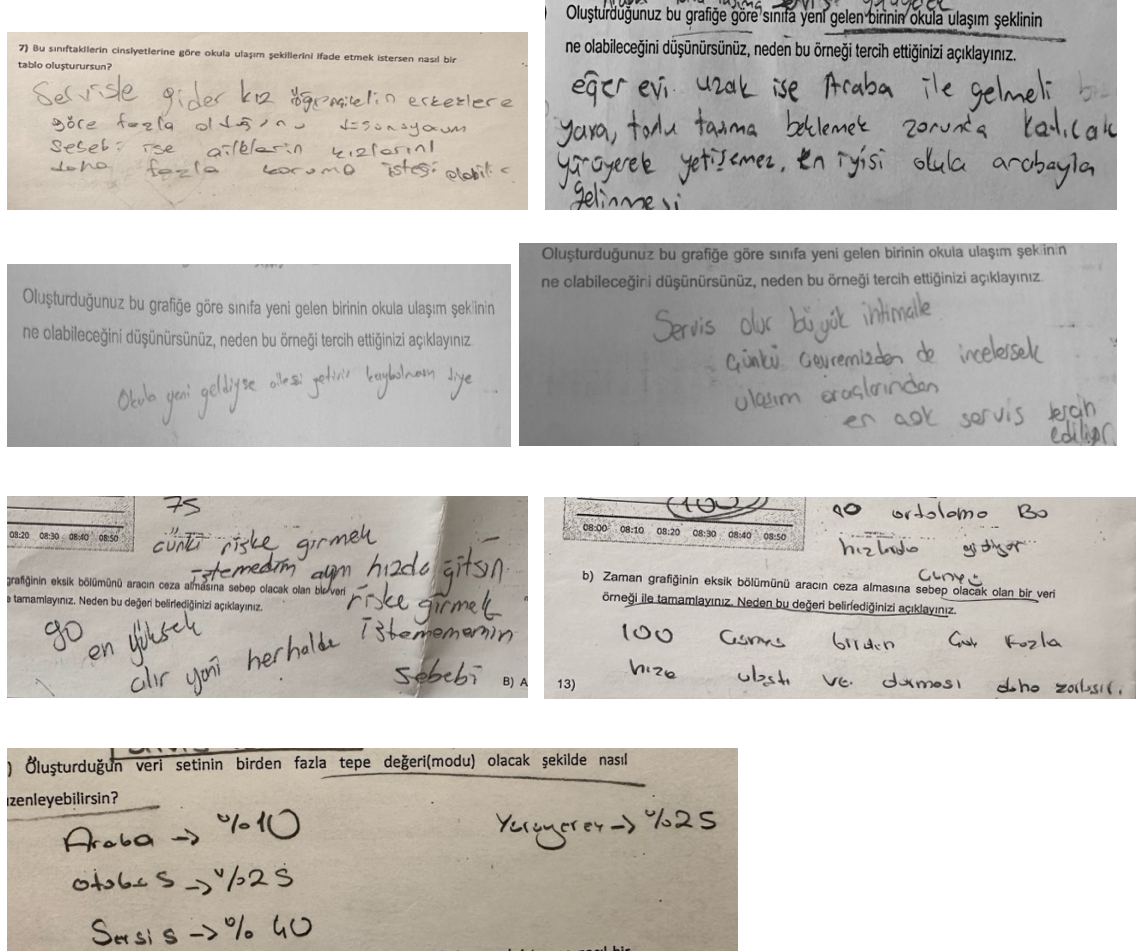 7) Bu sınıftakilerin cinsiyetlerine göre okula ulaşım şekillerini ifade etmek istersen nasıl bir
tablo oluşturursun?
Servisle gider kız öğrencilerin erkeklere
göre fazla olduğunu düşünüyorum
Sebebi ise ailelerin kızlarını
daha fazla koruma isteği olabilir
Oluşturduğunuz bu grafiğe göre sınıfa yeni gelen birinin okula ulaşım şeklinin
ne olabileceğini düşünürsünüz, neden bu örneği tercih ettiğinizi açıklayınız.
eğer evi uzak ise Araba ile gelmeli
yoksa, toplu taşıma beklemek zorunda kalıcak
yürüyerek yetişemez, En iyisi okula arabayla
gelinmesi
Oluşturduğunuz bu grafiğe göre sınıfa yeni gelen birinin okula ulaşım şeklinin
ne olabileceğini düşünürsünüz, neden bu örneği tercih ettiğinizi açıklayınız
Okula yeni geldiyse ailesi getirir kaybolmasın diye
Oluşturduğunuz bu grafiğe göre sınıfa yeni gelen birinin okula ulaşım şeklinin
ne olabileceğini düşünürsünüz, neden bu örneği tercih ettiğinizi açıklayınız
Servis olur büyük ihtimalle
Çünkü Çevremizden de incelersek
ulaşım araçlarından
en çok servis tercih
ediliyor
75
08:20 08:30 08:40 08:50
çünkü riske girmek
istemedim aynı hızda gitsin
grafiğinin eksik bölümünü aracın ceza almasına sebep olacak olan bir veri
tamamlayınız. Neden bu değeri belirlediğinizi açıklayınız.
riske girmek
istemememin
sebebi
90 en yüksek
alır yani herhalde
B) A
100
08:00 08:10 08:20 08:30 08:40 08:50
90 ortalama Bo
hızlarda gidiyor
Çünkü
b) Zaman grafiğinin eksik bölümünü aracın ceza almasına sebep olacak olan bir veri
örneği ile tamamlayınız. Neden bu değeri belirlediğinizi açıklayınız.
100 birden Çok Fazla
hıza ulaştı ve durması daha zorlaşır.
13)
) Oluşturduğun veri setinin birden fazla tepe değeri(modu) olacak şekilde nasıl
zenleyebilirsin?
Araba → %10
Yürüyerek → %25
otobüs → %25
Servis → %40